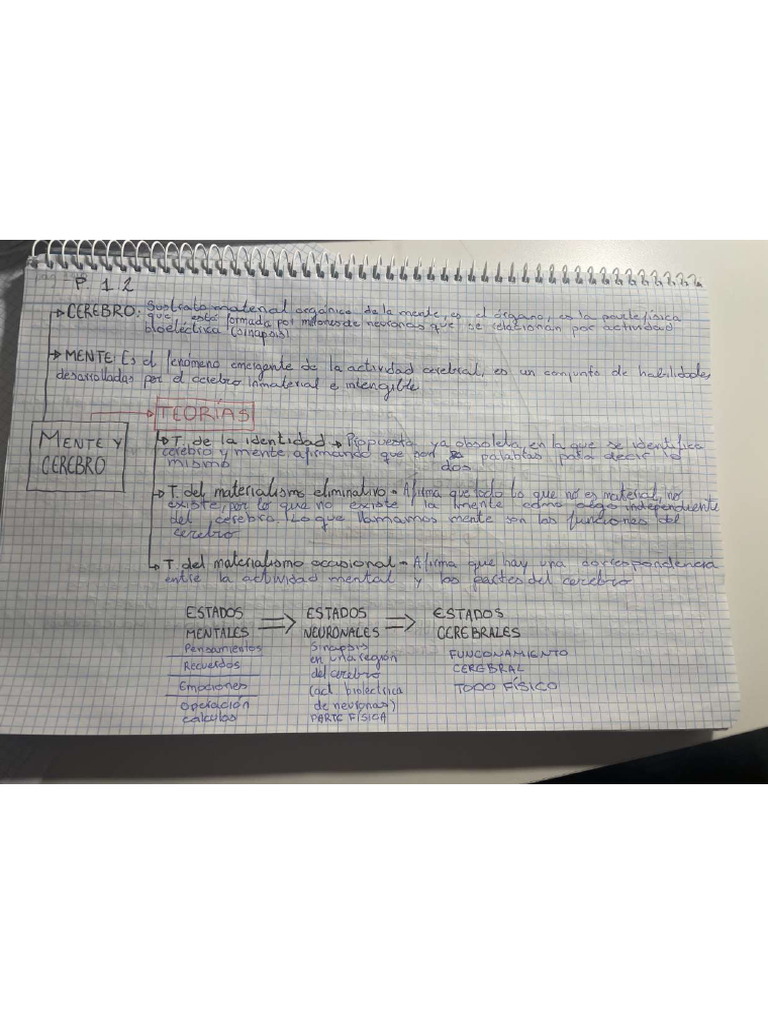 P. 1 2
→ CEREBRO: Sustrato material orgánico de la mente, es el órgano, es la parte física
que está formada por millones de neuronas que se relacionan por actividad
bioeléctrica (sinapsis)
→ MENTE: Es el fenómeno emergente de la actividad cerebral, es un conjunto de habilidades
desarrolladas por el cerebro inmaterial e intengible
TEORÍAS
MENTE Y
CEREBRO
→ T. de la identidad → Propuesta ya obsoleta, en la que se identifica
cerebro y mente afirmando que son palabras para decir lo
mismo dos
→ T. del materialismo eliminativo - Afirma que todo lo que no es material, no
existe, por lo que no existe la mente como algo independiente
del cerebro. Lo que llamamos mente son las funciones del
cerebro
→ T. del materialismo ocasional - Afirma que hay una correspondencia
entre la actividad mental y las partes del cerebro
ESTADOS MENTALES ⇒ ESTADOS NEURONALES ⇒ ESTADOS CEREBRALES
Pensamientos
Recuerdos
Emociones
Operación
calculos
Sinapsis
en una región
del cerebro
(act biolectrica
de neuronas)
PARTE FÍSICA
FUNCONAMIENTO
CEREBRAL
TODO FÍSICO